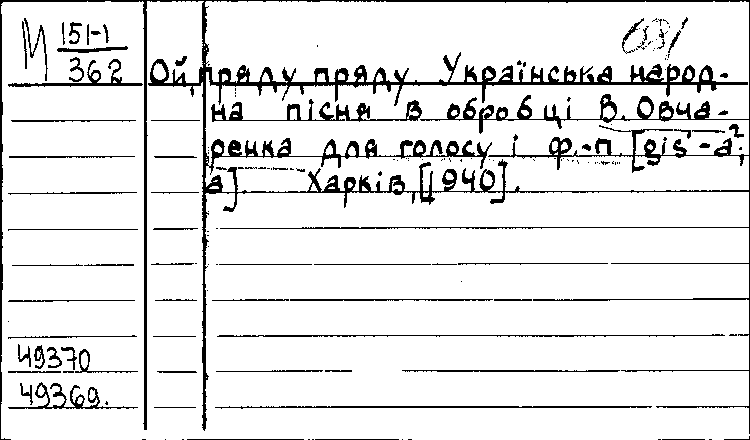 М 151-1
362
631
Ой, пряду, пряду. Українська народ-
на пісня в обробці В. Овча-
ренка для голосу і ф.-п. [gis¹-a²;
a]. Харків, [1940].
49370
49369.